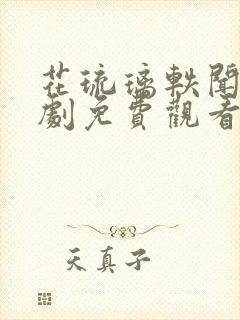 花琉璃軼聞
劇免費觀看
天真子